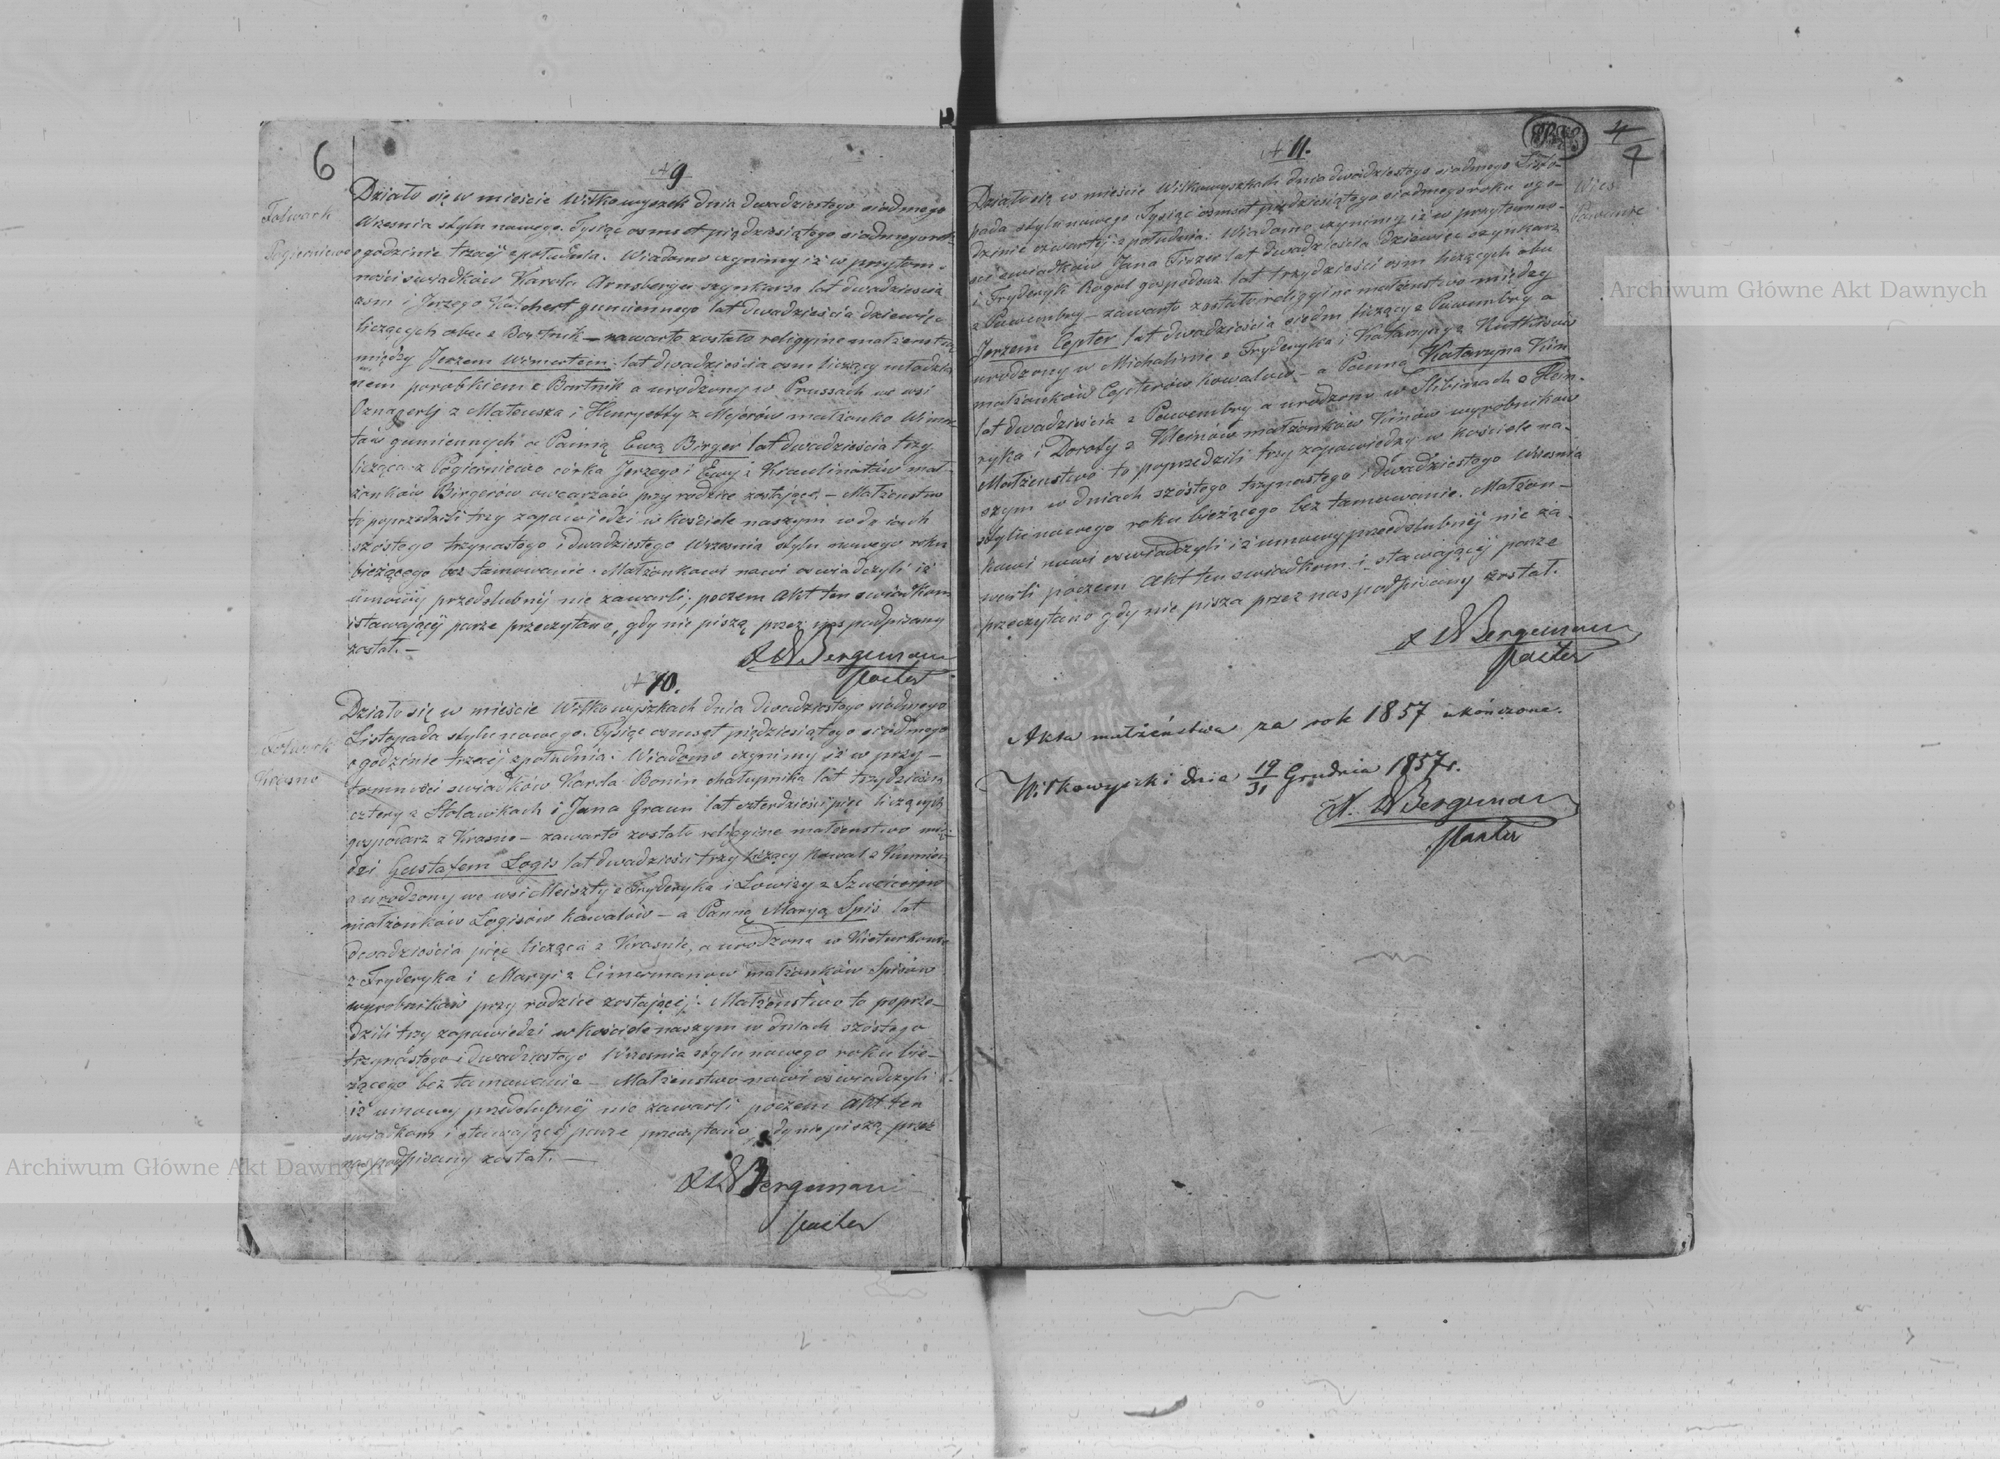 6
№ 9
Folwark
Pojieniewo
Działo się w mieście Wiłkowyszek dnia dwudziestego siódmego
Września stylu nowego. Tysiąc osmset pięćdziesiątego siódmego rok
o godzinie trzeciej z południa. Wiadomo czynimy iż w przytom-
ności świadków Karola Arnsberger szynkarza lat dwadzieścia
osm i Jerzego gumiennego lat dwadzieścia dziewięć
liczących obu z Bartnik – zawarte zostało religijne małżeństwo
między Jerzem Wimertem lat dwadzieścia osm liczący młodzia
nem parobkiem z Bartnik a urodzony w Prussach we wsi
z Mateusza i Henryetty z Mejerów małżonko
tów gumiennych a Panną Ewą Birger lat dwadzieścia trzy
licząca z Pogierniewo córka Jerzego i Ewy z Kraulinatów mał-
żonków Birgerów owczarzów przy rodzice zostającej – Małżeństwo
to poprzedzili trzy zapowiedzi w kościele naszym w dniach
szóstego trzynastego i dwudziestego Września stylu nowego roku
bieżącego bez tamowanie. Małżonkowi nowi oświadczyli iż
umowy przedślubnéj nie zawarli; poczem Akt ten świadkom
i stawającéj parze przeczytano, gdy nie piszą przez nas podpisany
został. –
Bergemann
Paster
№ 10.
Folwark
Krasno
Działo się w mieście Wiłkowyszkach dnia dwudziestego siódmego
Listopada stylu nowego. Tysiąc osmset pięćdziesiątego siódmego
o godzinie trzeciéj z południa. Wiadomo czynimy iż w przy-
tomności świadków Karola Bonin chałupnika lat trzydzieści
cztery z Stolawkach i Jana Graun lat czterdzieści pięc liczących
gospodarz z Krasno – zawarte zostało religijne małżeństwo mię-
dzi Gustafem Logis lat dwadzieści trzy liczący kowal z
a urodzony we wsi Meiszty z Fryderyka i Lowizy z
małżonków Logisów kowalów – a Panną Maryą Spis lat
dwadzieścia pięc licząca z Krasnie, a urodzona w
z Fryderyka i Maryi z Cimermanow małżonków Spisów
wyrobników przy rodzice zostającéj. Małżeństwo to poprze-
dzili trzy zapowiedzi w kościele naszym w dniach szóstego
trzynastego i dwudziestego Września stylu nowego roku bie-
żącego bez tamowanie – Małżeństwo nowi oświadczyli
iż umowy przedślubnéj nie zawarli poczem Akt ten
świadkom i stawającéj parze przeczytano, gdy nie piszą przez
nas podpisany został. –
Bergemann
Paster
4
7
№ 11.
Wieś
Pawembre
Działo się w mieście Wiłkowyszkach dnia dwudziestego siódmego Listo-
pada stylu nowego Tysiąc osmset pięćdziesiątego siódmego roku o go-
dzinie czwartéj z południa. Wiadomo czynimy iż w przytomno-
ści świadków Jana lat dwadzieścia dziewięc szynkarz
i Fryderyk Rogal gospodarz lat trzydzieści osm liczących obu
z Pawembry – zawarto zostało religijne małżeństwo między
Jerzem Cepter lat dwadzieścia siedm liczący z Pawembry a
urodzony w Michalinie z Fryderyka i Katarzyny z
małżonków Cepterów kowalów – a Panną Katarzyna Kin
lat dwadzieścia z Pawembry a urodzona w z Hen-
ryka i Doroty z Kleinów małżonków Kinów wyrobników
Małżeństwo to poprzedzili trzy zapowiedzy w kościele na-
szym w dniach szóstego trzynastego i dwudziestego Września
stylu nowego roku bieżącego bez tamowanie. Małżon-
kowi nowi oświadczyli iż umowy przedślubnéj nie za-
warli poczem Akt ten świadkom i stawającéj parze
przeczytano gdy nie pisza przez nas podpisany został.
Bergemann
Paster
Akta małżeństwa za rok 1857 ukończone.
Wiłkowyszki dnia 19/31 Grudnia 1857 r.
Bergemann
Paster
Archiwum Główne Akt Dawnych
Archiwum Główne Akt Dawnych